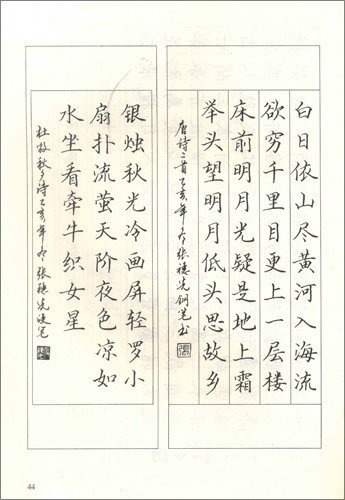 白日依山尽黄河入海流
欲穷千里目更上一层楼
床前明月光疑是地上霜
举头望明月低头思故乡
唐诗二首乙亥年冬张穗先钢笔书
张
银烛秋光冷画屏轻罗小
扇扑流萤天阶夜色凉如
水坐看牵牛织女星
杜牧秋夕诗乙亥年冬张穗先硬笔
44